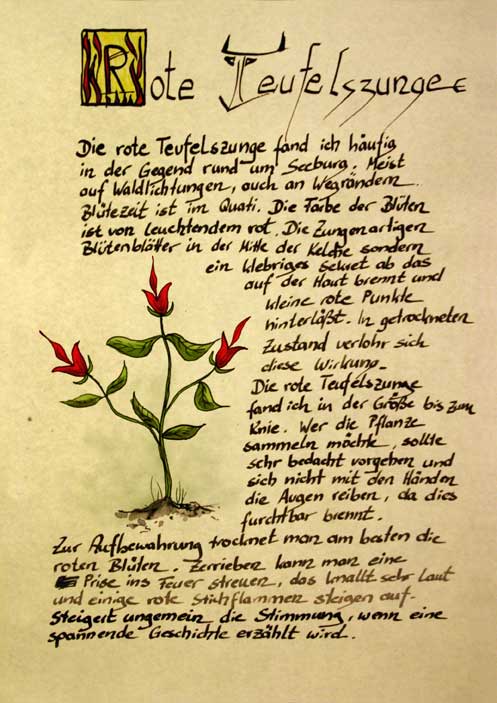 Rote Teufelszunge
Die rote Teufelszunge fand ich häufig
in der Gegend rund um Seeburg. Meist
auf Waldlichtungen, auch an Wegrändern.
Blütezeit ist im Quati. Die Farbe der Blüten
ist von leuchtendem rot. Die Zungenartigen
Blütenblätter in der Mitte der Kelche sondern
ein klebriges Sekret ab das
auf der Haut brennt und
kleine rote Punkte
hinterläßt. In getrockneten
Zustand verlohr sich
diese Wirkung.
Die rote Teufelszunge
fand ich in der Größe bis zum
Knie. Wer die Pflanze
sammeln möchte, sollte
sehr bedacht vorgehen und
sich nicht mit den Händen
die Augen reiben, da dies
furchtbar brennt.
Zur Aufbewahrung trocknet man am besten die
roten Blüten. Zerrieben kann man eine
Prise ins Feuer streuen, das knallt sehr laut
und einige rote Stichflammen steigen auf.
Steigert ungemein die Stimmung, wenn eine
spannende Geschichte erzählt wird.